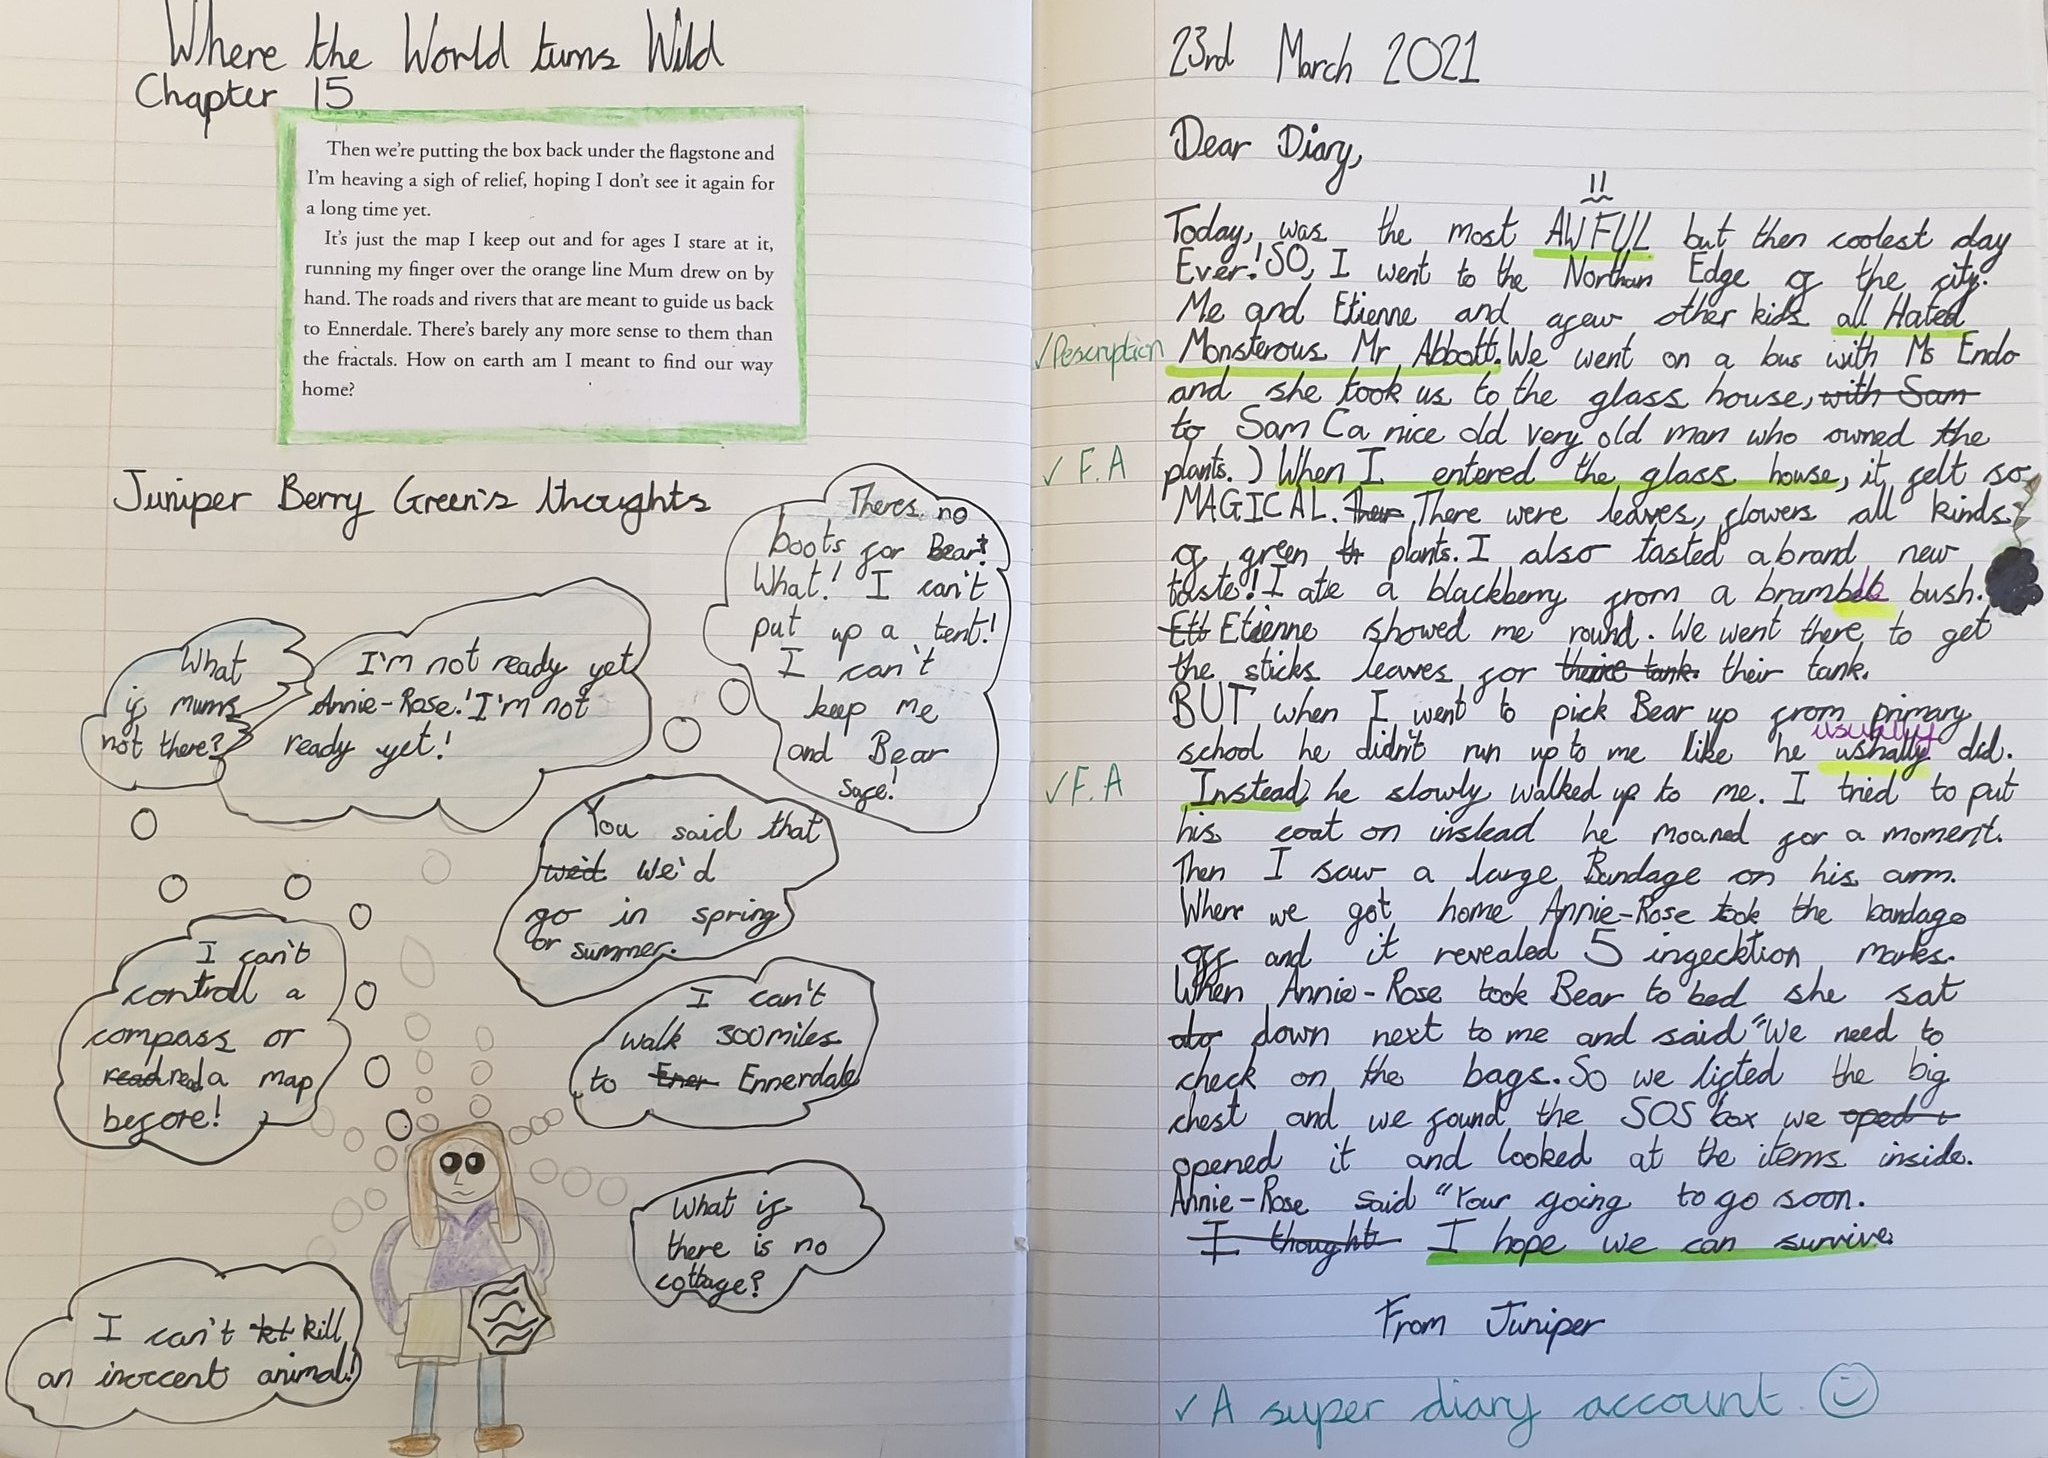 Where the World turns Wild
Chapter 15
Then we're putting the box back under the flagstone and
I'm heaving a sigh of relief, hoping I don't see it again for
a long time yet.
It's just the map I keep out and for ages I stare at it,
running my finger over the orange line Mum drew on by
hand. The roads and rivers that are meant to guide us back
to Ennerdale. There's barely any more sense to them than
the fractals. How on earth am I meant to find our way
home?
Juniper Berry Green's thoughts
Theres no
boots for Bear!
What! I can't
put up a tent!
I can't
keep me
and Bear
safe!
What
if mums
not there?
I'm not ready yet
Annie-Rose! I'm not
ready yet!
You said that
we'd
go in spring
or summer.
I can't
controll a
compass or
read a map
before!
I can't
walk 300 miles
to Ener Ennerdale
What if
there is no
cottage?
I can't kt kill
an inoccent animal!
23rd March 2021
Dear Diary,
!!
Today, was the most AWFUL but then coolest day
Ever! SO, I went to the Northan Edge of the city.
Me and Etienne and afew other kids all Hated
✓Description Monsterous Mr Abbott. We went on a bus with Ms Endo
and she took us to the glass house, with Sam
to Sam (a nice old very old man who owned the
✓ F.A plants.) When I entered the glass house, it felt so
MAGICAL. Their There were leaves, flowers all kinds
of green th plants. I also tasted a brand new
taste! I ate a blackberry from a bramble bush.
Ett Etienne showed me round. We went there to get
the sticks leaves for theire tank. their tank.
BUT when I went to pick Bear up from primary
usually
school he didn't run up to me like he ushally did.
✓F.A Instead, he slowly walked up to me. I tried to put
his coat on instead he moaned for a moment.
Then I saw a large Bandage on his arm.
When we got home Annie-Rose took the bandage
off and it revealed 5 ingecktion marks.
When Annie-Rose took Bear to bed she sat
do down next to me and said "We need to
check on the bags. So we lifted the big
chest and we found the SOS box we oped i
opened it and looked at the items inside.
Annie-Rose said "Your going to go soon.
I thought I hope we can survive.
From Juniper
✓ A super diary account. ☺